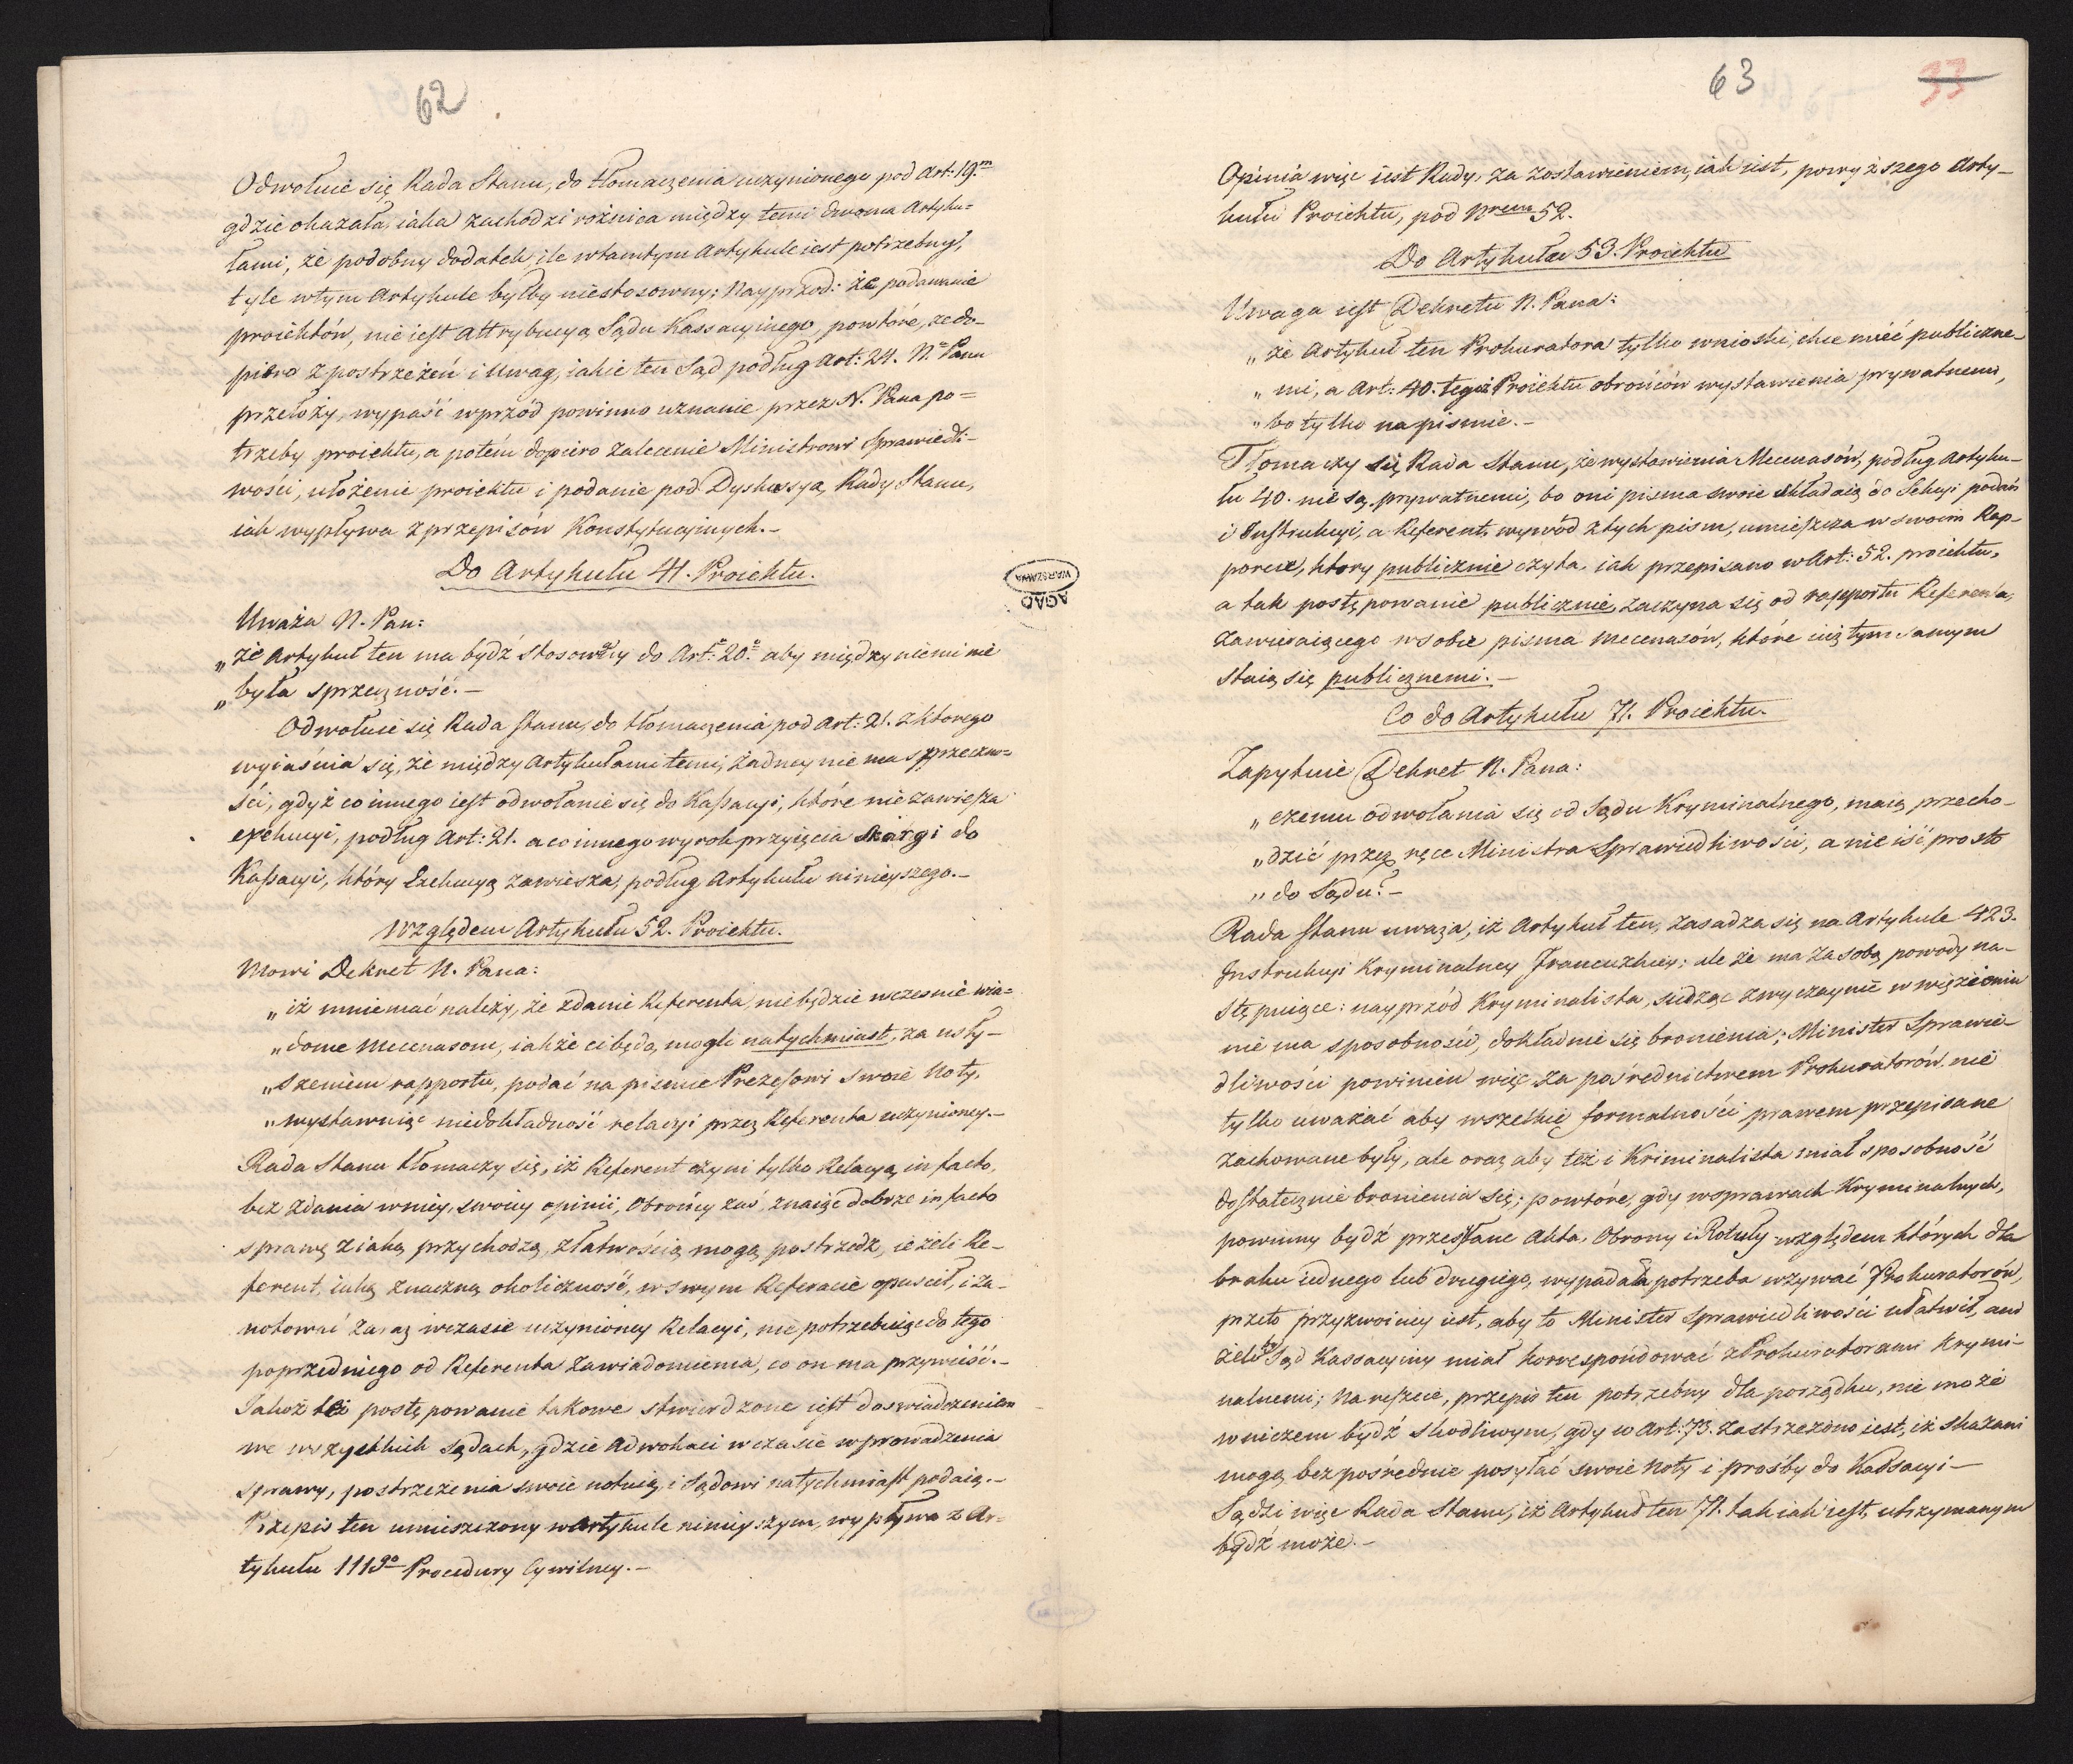 62
Odwołuie się Rada Stanu, do tłomaczenia uczynionego pod Art: 19.m
gdzie okazała, iaka zachodzi rożnica między temi dwoma Artyku=
łami, że podobny dodatek ile wtamtym Artykule iest potrzebny,
tyle wtym Artykule byłby niestosowny; Nayprzod: że podawanie
proiektów, nie iest attrybucyą Sądu Kassacyinego, powtóre, że do-
piero z postrzeżeń i Uwag, iakie ten Sąd podług Art: 24. N. Panu
przełoży, wypaść wprzód powinno uznanie przez N. Pana po=
trzeby proiektu, a potém dopiero zalecenie Ministrowi Sprawiedli-
wości, ułożenie proiektu i podanie pod Dyskussyą Rady Stanu,
iak wypływa z przepisów Konstytucyinych.-
Do Artykułu 41. Proiektu.
Uważa N. Pan:
„że Artykuł ten ma bydź stosowny do Art: 20. aby między niemi nie
„była sprzeczność.-
Odwołuie się Rada Stanu, do tłomaczenia pod Art: 21. z ktorego
wyiaśnia się, że między Artykułami temi, żadney nie ma sprzeczno=
ści, gdyż co innego iest odwołanie się do Kassacyi, które nie zawiesza
exekucyi, podług Art: 21. a co innego wyrok przyięcia Skargi do
Kassacyi, który Exekucyą zawiesza, podług Artykułu ninieyszego.-
Względem Artykułu 52. Proiektu.
Mowi Dekret N. Pana:
„iż mniemać należy, że zdanie Referenta, nie będzie wczesnie wia=
„dome Mecenasom, iakże ci będą mogli natychmiast, za usły-
„szeniem rapportu, podać na pismie Prezesowi swoie Noty,
„wystawuiąc niedokładność relacyi przez Referenta uczynioney.-
Rada Stanu tłomaczy się, iż Referent czyni tylko Relacyą in facto,
bez zdania wniey, swoiey opinii, Obrońcy zaś, znaiąc dobrze in facto
sprawę z iaką przychodzą, złatwością mogą postrzedz, ieżeli Re-
ferent, iaką znaczną okoliczność, w swym Referacie opuścił, i za-
notować zaraz wczasie uczynioney Relacyi, nie potrzebuiąc do tego
poprzedniego od Referenta zawiadomienia, co on ma przywieść.-
Jakoż też postępowanie takowe stwierdzone iest doswiadczeniem
we wszystkich Sądach, gdzie Adwokaci w czasie wprowadzenia
sprawy, postrzeżenia swoie notuią, i Sądowi natychmiast podaią.-
Przepis ten umieszczony w Artykule ninieyszym, wypływa z Ar-
tykułu 111go Procedury Cywilney.-
AGAD
WARSZAWA
63
33
Opinia więc iest Rady, za zostawieniem, iak iest, powyższego Arty-
kułu Proiektu, pod Nrem 52.
Do Artykułu 53. Proiektu
Uwaga iest Dekretu N. Pana:
„że Artykuł ten Prokuratora tylko wnioski, chce mieć publiczne-
„mi, a Art: 40. tegoż Proiektu obrońców wystawienia prywatnemi,
„bo tylko na pismie.-
Tłomaczy się Rada Stanu, że wystawienia Mecenasów, podług Artyku-
łu 40. nie są prywatnemi, bo oni pisma swoie składaią do Sekcyi podań
i Instrukcyi, a Referent, wywód z tych pism, umieszcza w swoim Rap-
porcie, ktory publicznie czyta, iak przepisano w Art: 52. proiektu,
a tak postępowanie publicznie, zaczyna się od rapportu Referenta,
zawieraiącego wsobie pisma Mecenasów, które iuż tym samym
staią się publicznemi.-
Co do Artykułu 71. Proiektu.
Zapytuie Dekret N. Pana:
„czemu odwołania się od Sądu Kryminalnego, maią przecho-
„dzić przez ręce Ministra Sprawiedliwości, a nie iść prosto
„do Sądu?-
Rada Stanu uważa, iż Artykuł ten, zasadza się na Artykule 423.
Instrukcyi Kryminalney Francuzkiey; ale że ma za sobą powody na-
stępuiące: nayprzód Kryminalista, siedząc zwyczaynie w więzieniu
nie ma sposobności, dokładnie się bronienia; Minister Sprawie-
dliwości powinien więc za pośrednictwem Prokuratorów, nie
tylko uważać aby wszelkie formalności prawem przepisane
zachowane były, ale oraz aby też i Kriminalista miał sposobność
dostatecznie bronienia się; powtóre, gdy wsprawach Kryminalnych,
powinny bydź przesłane Akta, Obrony i Rotuły względem których dla
braku iednego lub drugiego, wypadała potrzeba wzywać Prokuratorów,
przeto przyzwoiciey iest, aby to Minister Sprawiedliwości ułatwił, ani
żeliby Sąd Kassacyiny miał korrespondować z Prokuratorami Krymi-
nalnemi; Nareszcie, przepis ten potrzebny dla porządku, nie może
wniczem bydź szkodliwym, gdy w Art: 73. zastrzeżono iest, iż skazani
mogą bezpośrednie posyłać swoie Noty i prośby do Kassacyi-
Sądzi więc Rada Stanu, iż Artykuł ten 71. tak iak iest, utrzymanym
bydź może.-